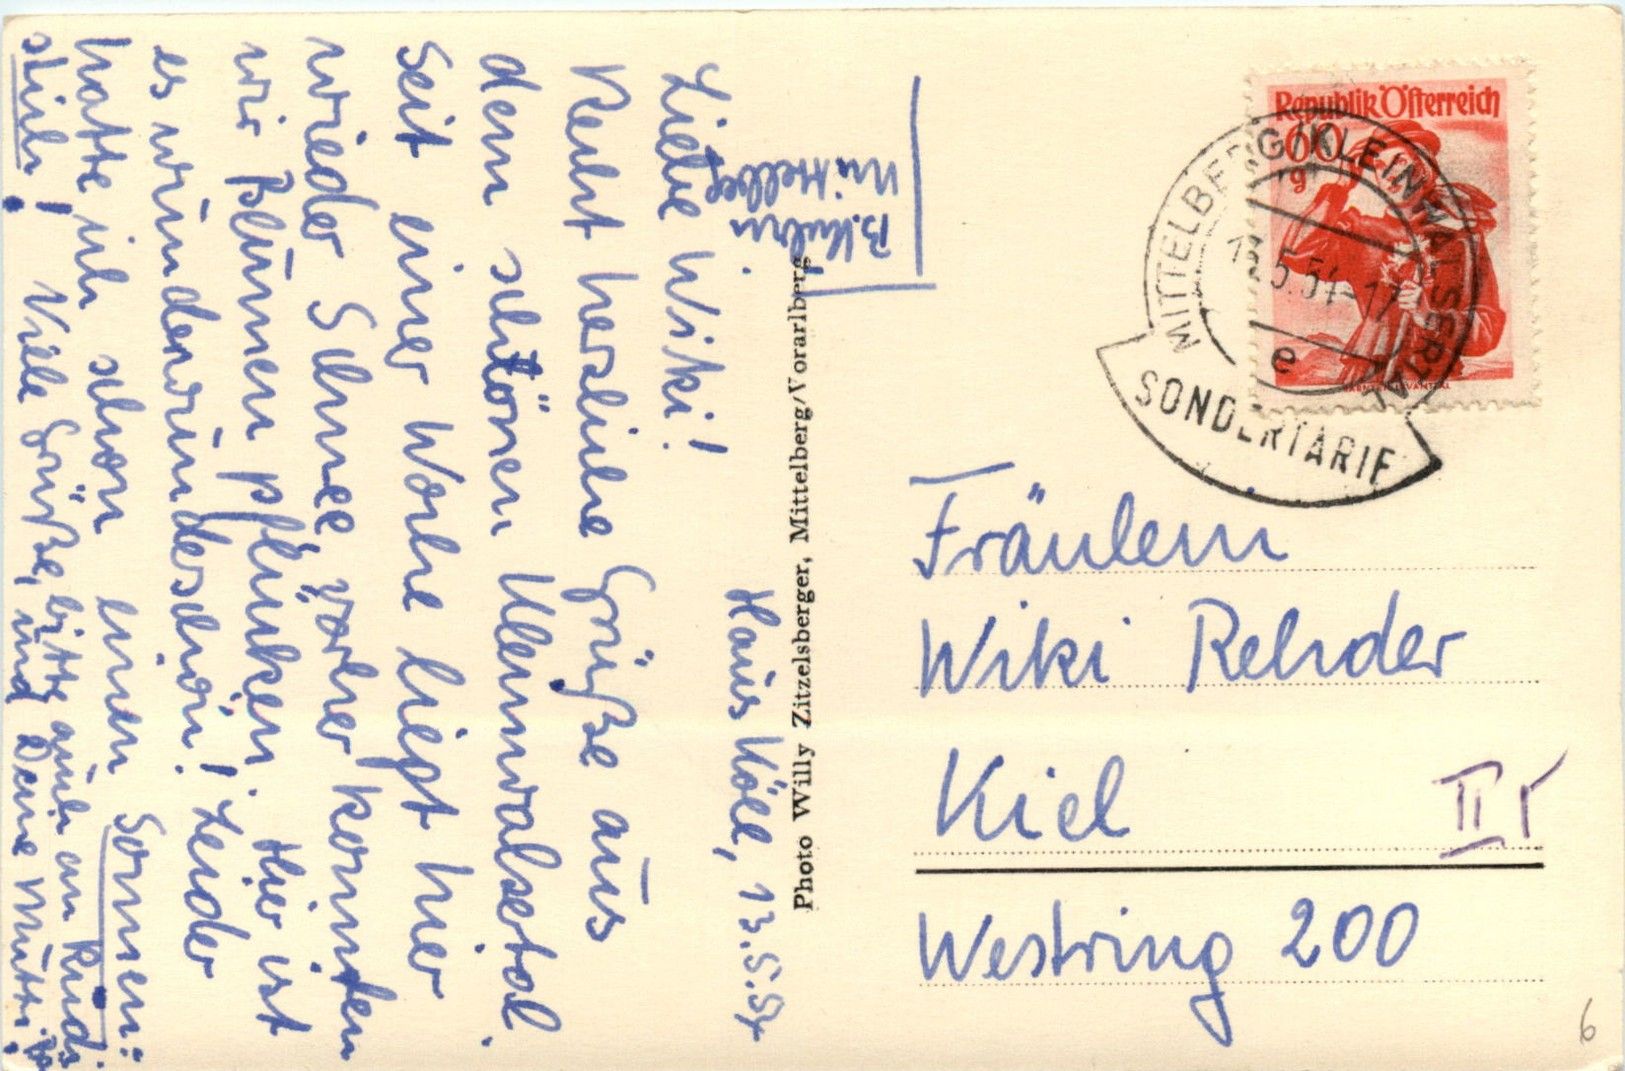 Haus Köll, 13.5.54
Liebe Wiki!
Recht herzliche Grüße aus
dem schönen Kleinwalsertal.
Seit einer Woche liegt hier
wieder Schnee, vorher konnten
wir Blumen pflücken. Hier ist
es wunderwunderschön! Leider
hatte ich schon einen Sonnen-
stich! Viele Grüße, bitte auch an Rudi
und Deine Mutti.
Mittelberg
Photo Willy Zitzelsberger, Mittelberg/Vorarlberg
Republik Österreich
60 g
MITTELBERG/KLEINWALSERTAL
5.54-17
e
SONDERTARIF
Fräulein
Wiki Rehder
Kiel
Westring 200
6